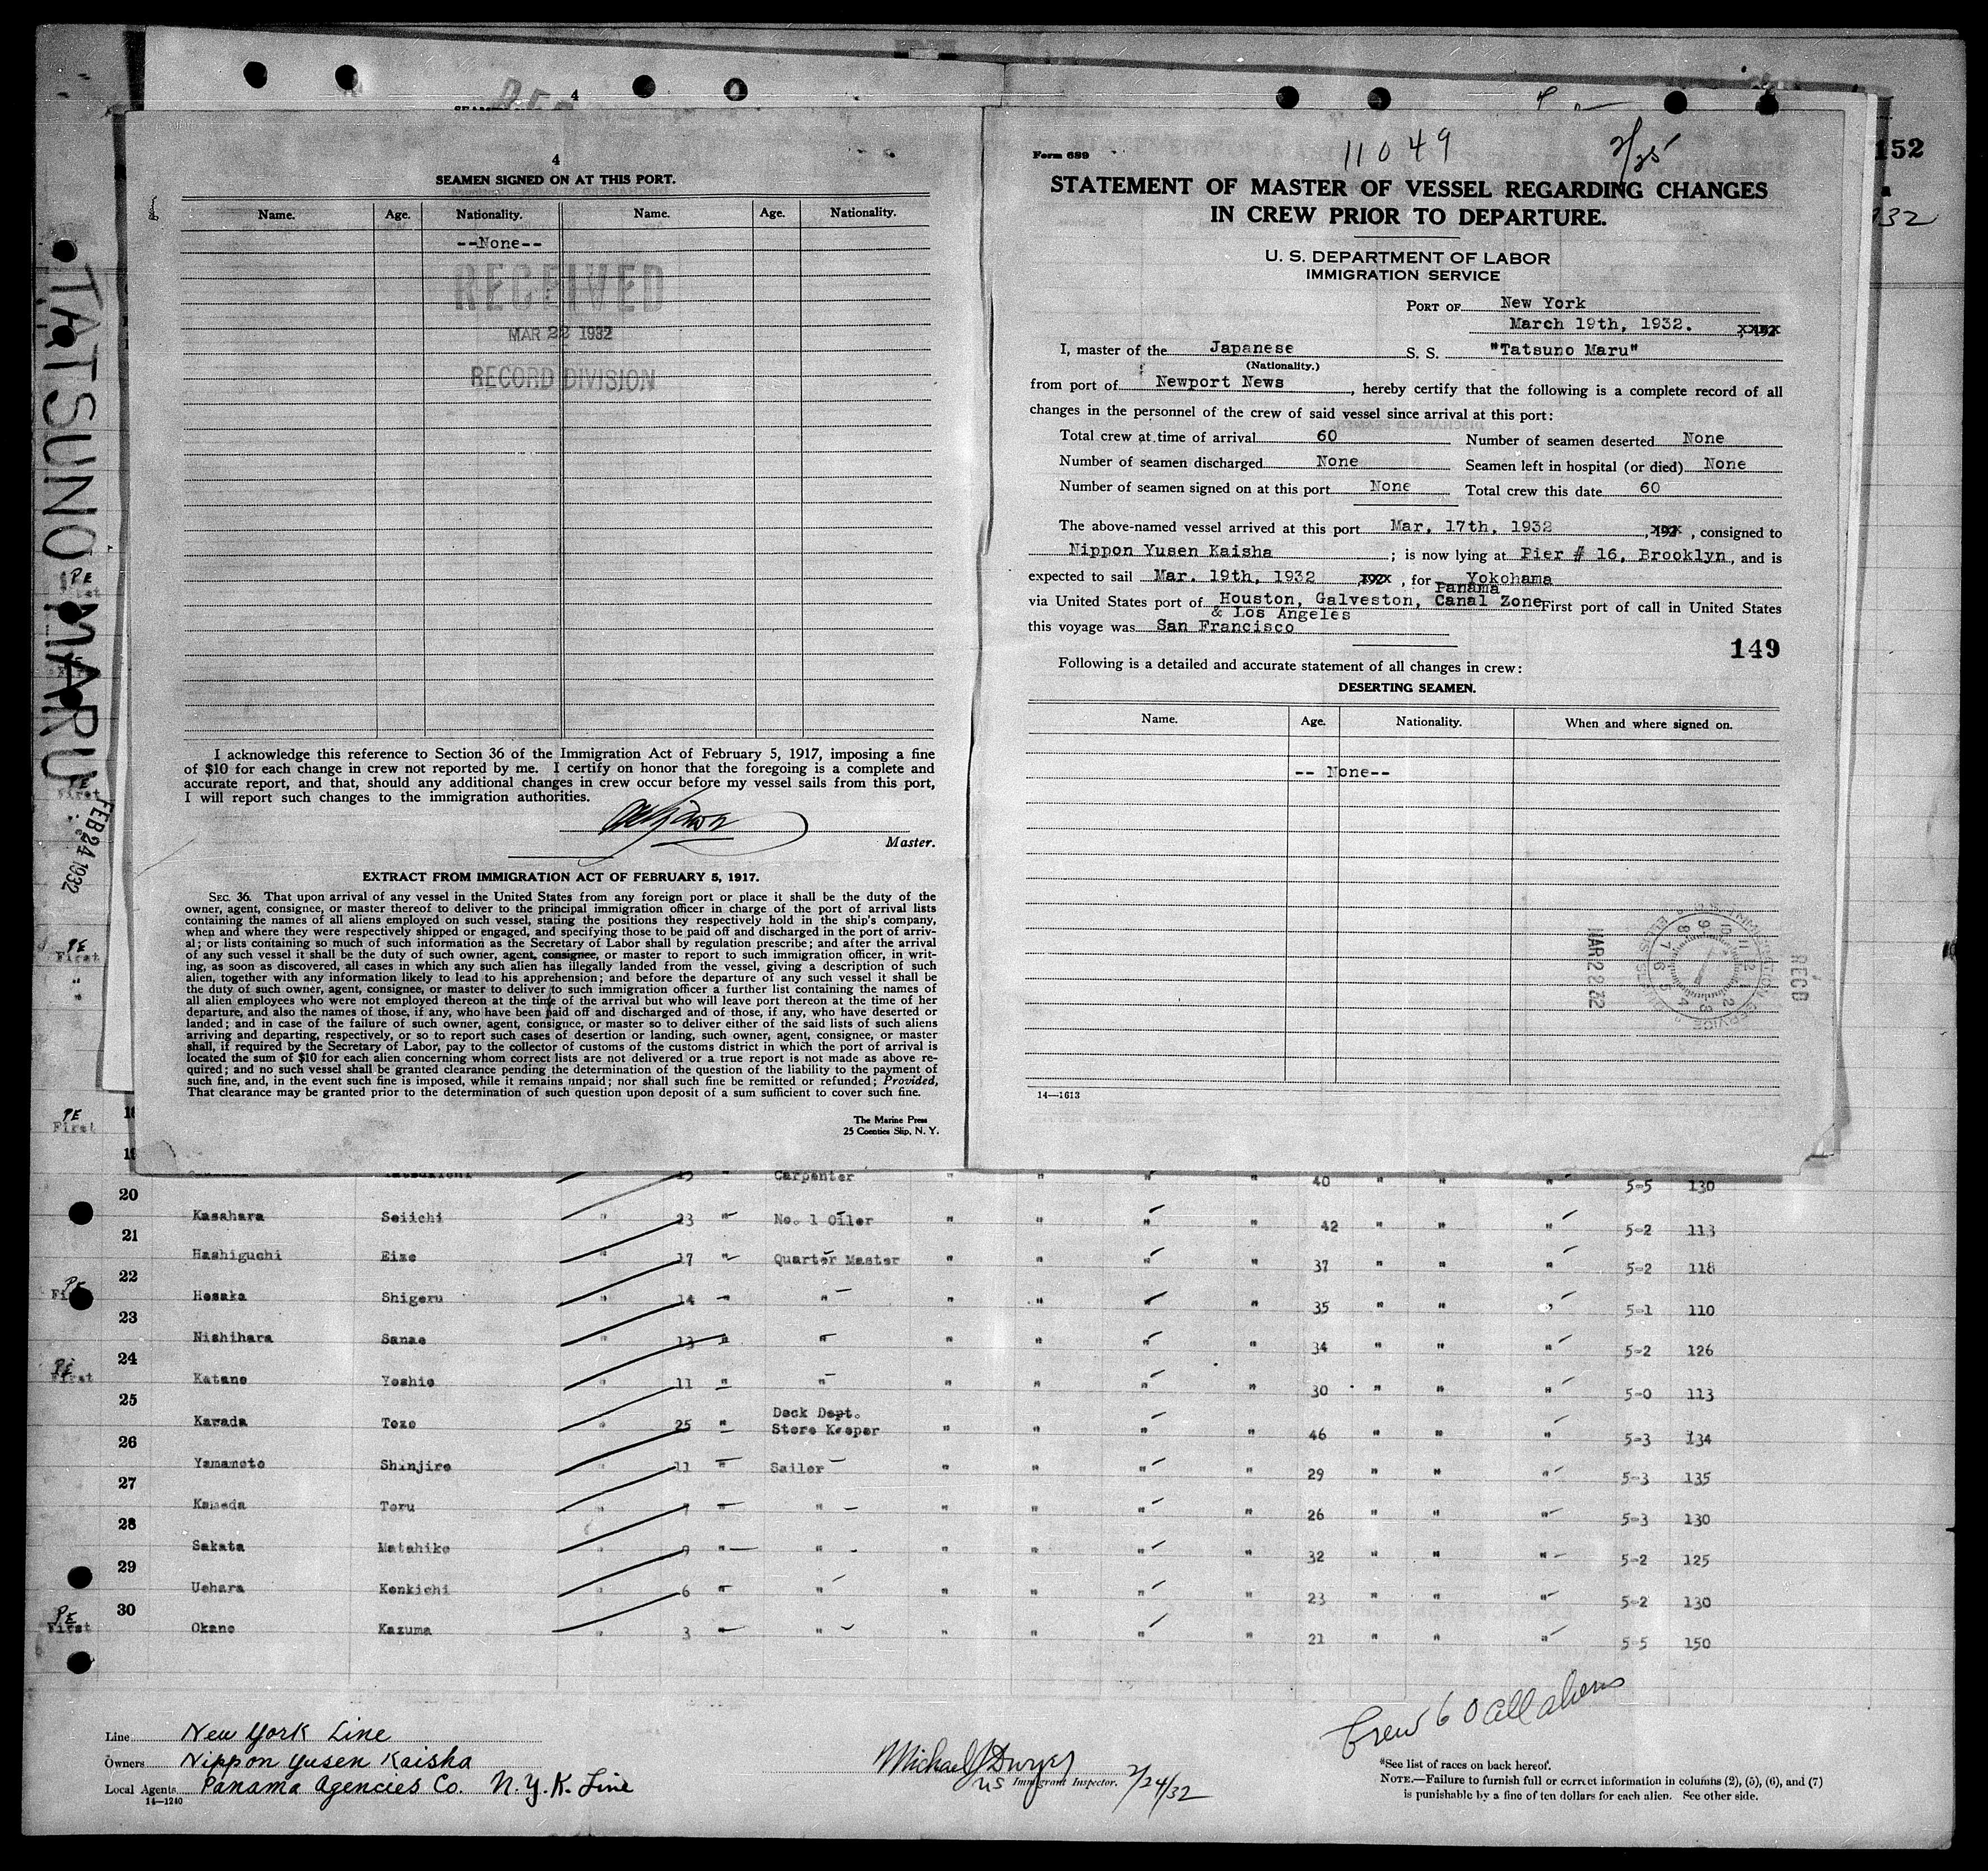 4
4
SEAMEN SIGNED ON AT THIS PORT.
Name. Age. Nationality. Name. Age. Nationality.
--None--
RECEIVED
MAR 22 1932
RECORD DIVISION
I acknowledge this reference to Section 36 of the Immigration Act of February 5, 1917, imposing a fine
of $10 for each change in crew not reported by me. I certify on honor that the foregoing is a complete and
accurate report, and that, should any additional changes in crew occur before my vessel sails from this port,
I will report such changes to the immigration authorities.
Master.
EXTRACT FROM IMMIGRATION ACT OF FEBRUARY 5, 1917.
SEC. 36. That upon arrival of any vessel in the United States from any foreign port or place it shall be the duty of the
owner, agent, consignee, or master thereof to deliver to the principal immigration officer in charge of the port of arrival lists
containing the names of all aliens employed on such vessel, stating the positions they respectively hold in the ship's company,
when and where they were respectively shipped or engaged, and specifying those to be paid off and discharged in the port of arriv-
al; or lists containing so much of such information as the Secretary of Labor shall by regulation prescribe; and after the arrival
of any such vessel it shall be the duty of such owner, agent, consignee, or master to report to such immigration officer, in writ-
ing, as soon as discovered, all cases in which any such alien has illegally landed from the vessel, giving a description of such
alien, together with any information likely to lead to his apprehension; and before the departure of any such vessel it shall be
the duty of such owner, agent, consignee, or master to deliver to such immigration officer a further list containing the names of
all alien employees who were not employed thereon at the time of the arrival but who will leave port thereon at the time of her
departure, and also the names of those, if any, who have been paid off and discharged and of those, if any, who have deserted or
landed; and in case of the failure of such owner, agent, consignee, or master so to deliver either of the said lists of such aliens
arriving and departing, respectively, or so to report such cases of desertion or landing, such owner, agent, consignee, or master
shall, if required by the Secretary of Labor, pay to the collector of customs of the customs district in which the port of arrival is
located the sum of $10 for each alien concerning whom correct lists are not delivered or a true report is not made as above re-
quired; and no such vessel shall be granted clearance pending the determination of the question of the liability to the payment of
such fine, and, in the event such fine is imposed, while it remains unpaid; nor shall such fine be remitted or refunded; Provided,
That clearance may be granted prior to the determination of such question upon deposit of a sum sufficient to cover such fine.
The Marine Press
25 Coenties Slip, N. Y.
Form 689
11049
2/25
STATEMENT OF MASTER OF VESSEL REGARDING CHANGES
IN CREW PRIOR TO DEPARTURE.
U. S. DEPARTMENT OF LABOR
IMMIGRATION SERVICE
PORT OF New York
March 19th, 1932.
I, master of the Japanese S. S. "Tatsuno Maru"
(Nationality.)
from port of Newport News, hereby certify that the following is a complete record of all
changes in the personnel of the crew of said vessel since arrival at this port:
Total crew at time of arrival 60 Number of seamen deserted None
Number of seamen discharged None Seamen left in hospital (or died) None
Number of seamen signed on at this port None Total crew this date 60
The above-named vessel arrived at this port Mar. 17th, 1932, consigned to
Nippon Yusen Kaisha; is now lying at Pier # 16, Brooklyn, and is
expected to sail Mar. 19th, 1932, for Yokohama
Panama
via United States port of Houston, Galveston, Canal Zone First port of call in United States
& Los Angeles
this voyage was San Francisco
149
Following is a detailed and accurate statement of all changes in crew:
DESERTING SEAMEN.
Name. Age. Nationality. When and where signed on.
-- None--
MAR 22 32
REC'D
14—1613
152
TATSUNO MARU
FEB 24 1932
PE First
PE First
PE First
PE First
18
19
Carpenter 40 " " " 5-5 130
20
Kasahara Seiichi " 23 " No. 1 Oiler " " " " 42 " " " 5-2 113
21
Hashiguchi Eizo " 17 " Quarter Master " " " " 37 " " " 5-2 118
22
PE First
Hosaka Shigeru " 14 " " " " " 35 " " " 5-1 110
23
Nishihara Sanae " 13 " " " " " " 34 " " " 5-2 126
24
PE First
Katano Yoshio " 11 " " " " " " 30 " " " 5-0 113
25
Deck Dept.
Kawada Tozo " 25 " Store Keeper " " " " 46 " " " 5-3 134
26
Yamamoto Shinjiro " 11 " Sailor " " " " 29 " " " 5-3 135
27
Kameda Toru " 7 " " " " " " 26 " " " 5-3 130
28
Sakata Matahiko " 9 " " " " " " 32 " " " 5-2 125
29
Uehara Kenkichi " 6 " " " " " " 23 " " " 5-2 130
30
PE First
Okano Kazuma " 3 " " " " " " 21 " " " 5-5 150
Crew 60 all aliens
Line New York Line
Owners Nippon Yusen Kaisha
Local Agents Panama Agencies Co. N.Y.K. Line
14—1240
Michael J Dwyer
US Immigrant Inspector. 2/24/32
*See list of races on back hereof.
NOTE.—Failure to furnish full or correct information in columns (2), (5), (6), and (7)
is punishable by a fine of ten dollars for each alien. See other side.